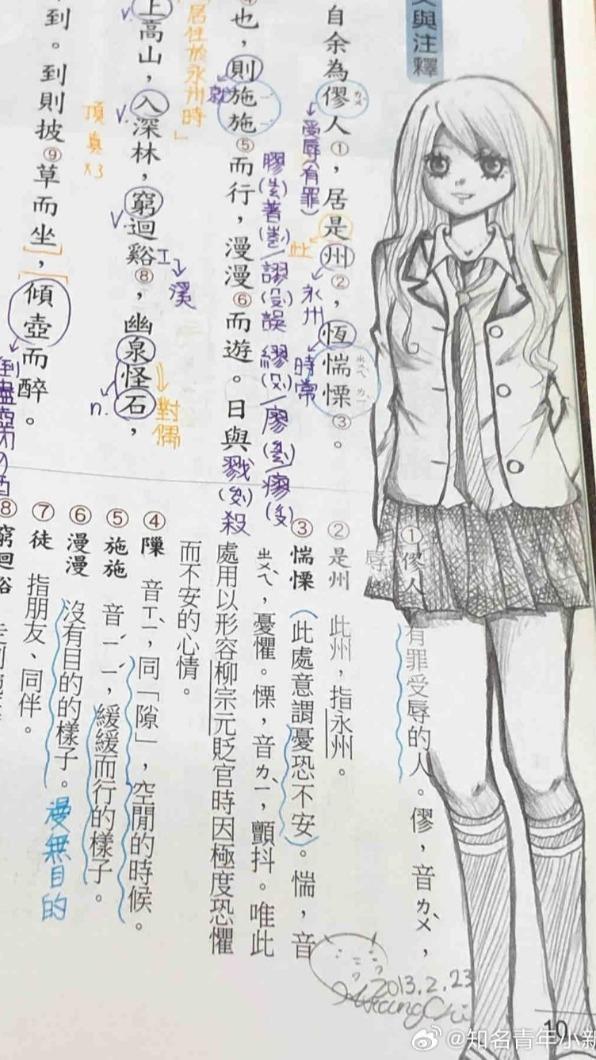 與注釋
自余為僇人①，居是州②，恆惴慄③。
ㄌㄨˋ
受辱(有罪)
此
永州
時常
ㄓㄨㄟˋ ㄌㄧˋ
也，則施施⑤而行，漫漫⑥而遊。日與
就
膠 著 謬 誤 繆 廖
戮 殺
居住於永州時」
上高山，入深林，窮迴谿⑧，幽泉怪石，
v.
v.
溪
n.
對偶
頂真x3
到。到則披⑨草而坐，傾壺而醉。
①僇人 有罪受辱的人。僇，音ㄌㄨˋ，
辱
②是州 此州，指永州。
③惴慄 （此處意謂憂恐不安）。惴，音
ㄓㄨㄟˋ，憂懼。慄，音ㄌㄧˋ，顫抖。唯此
處用以形容柳宗元貶官時因極度恐懼
而不安的心情。
④隟 音ㄒㄧˋ，同「隙」，空閒的時候。
⑤施施 音ㄧˊ ㄧˊ，緩緩而行的樣子。
⑥漫漫 沒有目的的樣子。
漫無目的
⑦徒 指朋友、同伴。
⑧窮迴谿
2013.2.23
10
@知名青年小新